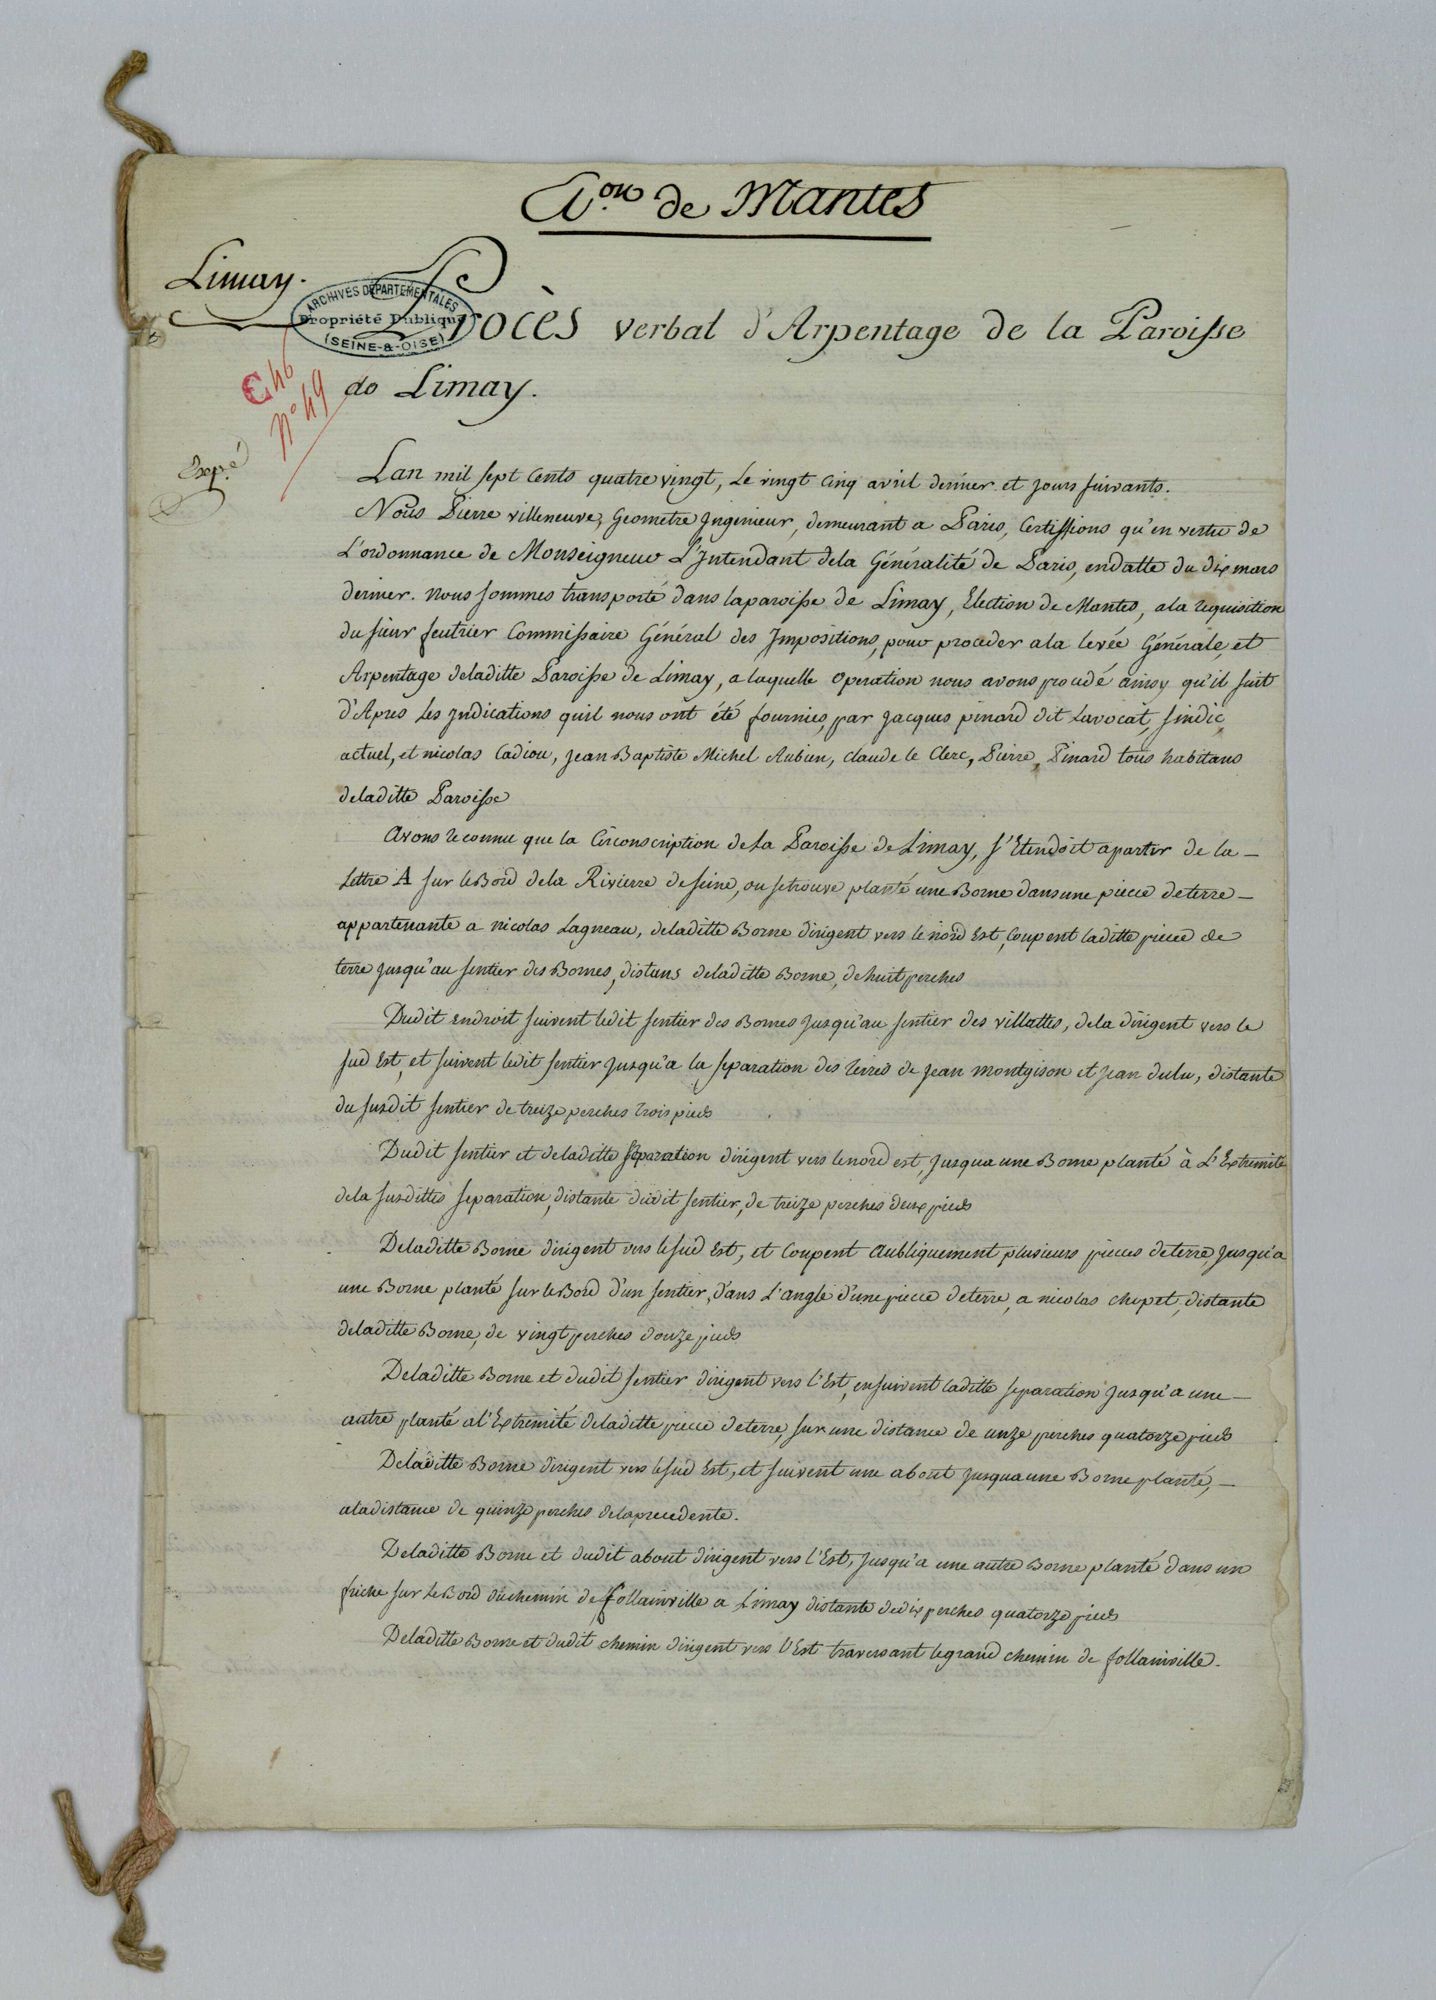 E.on de Mantes
Limay.
ARCHIVES DÉPARTEMENTALES
Propriété Publique
(SEINE-&-OISE)
Procès verbal d'Arpentage de la Paroisse
de Limay.
E 46
N° 49
Exp.é
Lan mil sept Cents quatre vingt, Le vingt Cinq avril dernier et jours suivants.
Nous Pierre villeneuve, Geometre Ingenieur, demeurant a Paris, Certiffions qu'en vertu de
L'ordonnance de Monseigneur L'Intendant dela Généralité de Paris, endatte du dix mars
dernier. nous sommes transporté dans laparoisse de Limay, Election de Mantes, ala requisition
du sieur feutrier Commissaire Général des Impositions, pour proceder ala levée Générale et
Arpentage deladitte Paroisse de Limay, a laquelle operation nous avons procédé ainsy qu'il suit
d'Apres Les Indications quil nous ont été fournies, par Jacques pinard dit Lavocat, sindic
actuel, et nicolas Cadiou, Jean Baptiste Michel Aubin, claude le Clerc, Pierre Pinard tous habitans
deladitte Paroisse
Avons reconnu que la Circonscription dela Paroisse de Limay, s'Etendoit apartir de la –
Lettre A sur leBord dela Rivierre deseine, ou setrouve planté une Borne dansune piece deterre –
appartenante a nicolas Lagneau, deladitte Borne dirigent vers le nord Est, Coupent laditte piece de
terre Jusqu'au sentier des Bornes, distans deladitte Borne, de huit perches
Dudit endroit suivent ledit sentier des Bornes Jusqu'au sentier des villattes, dela dirigent vers le
sud Est, et suivent ledit sentier Jusqu'a la separation des terres de Jean montgison et Jean dulu, distante
du susdit sentier de treize perches trois pieds
Dudit sentier et deladitte separation dirigent vers lenord est, Jusqua une Borne planté à L'Extremité
dela susdittes separation, distante dudit sentier, de treize perches deux pieds
Deladitte Borne dirigent vers lesud Est, et Coupent Aubliquement plusieurs pieces deterre, Jusqu'a
une Borne planté sur leBord d'un sentier, dans L'angle d'une piece deterre, a nicolas chopet, distante
deladitte Borne, de vingt perches douze pieds
Deladitte Borne et dudit sentier dirigent vers l'Est, ensuivent laditte separation Jusqu'a une –
autre planté al'Extremité deladitte piece deterre, sur une distance de unze perches quatorze pieds
Deladitte Borne dirigent vers lesud Est, et suivent une about Jusqua une Borne planté, –
aladistance de quinze perches delaprecedente.
Deladitte Borne et dudit about dirigent vers l'Est, Jusqu'a une autre Borne planté dans un
friche sur LeBord duchemin de follainville a Limay distante dedix perches quatorze pieds
Deladitte Borne et dudit chemin dirigent vers l'Est traversant legrand chemin de follainville.